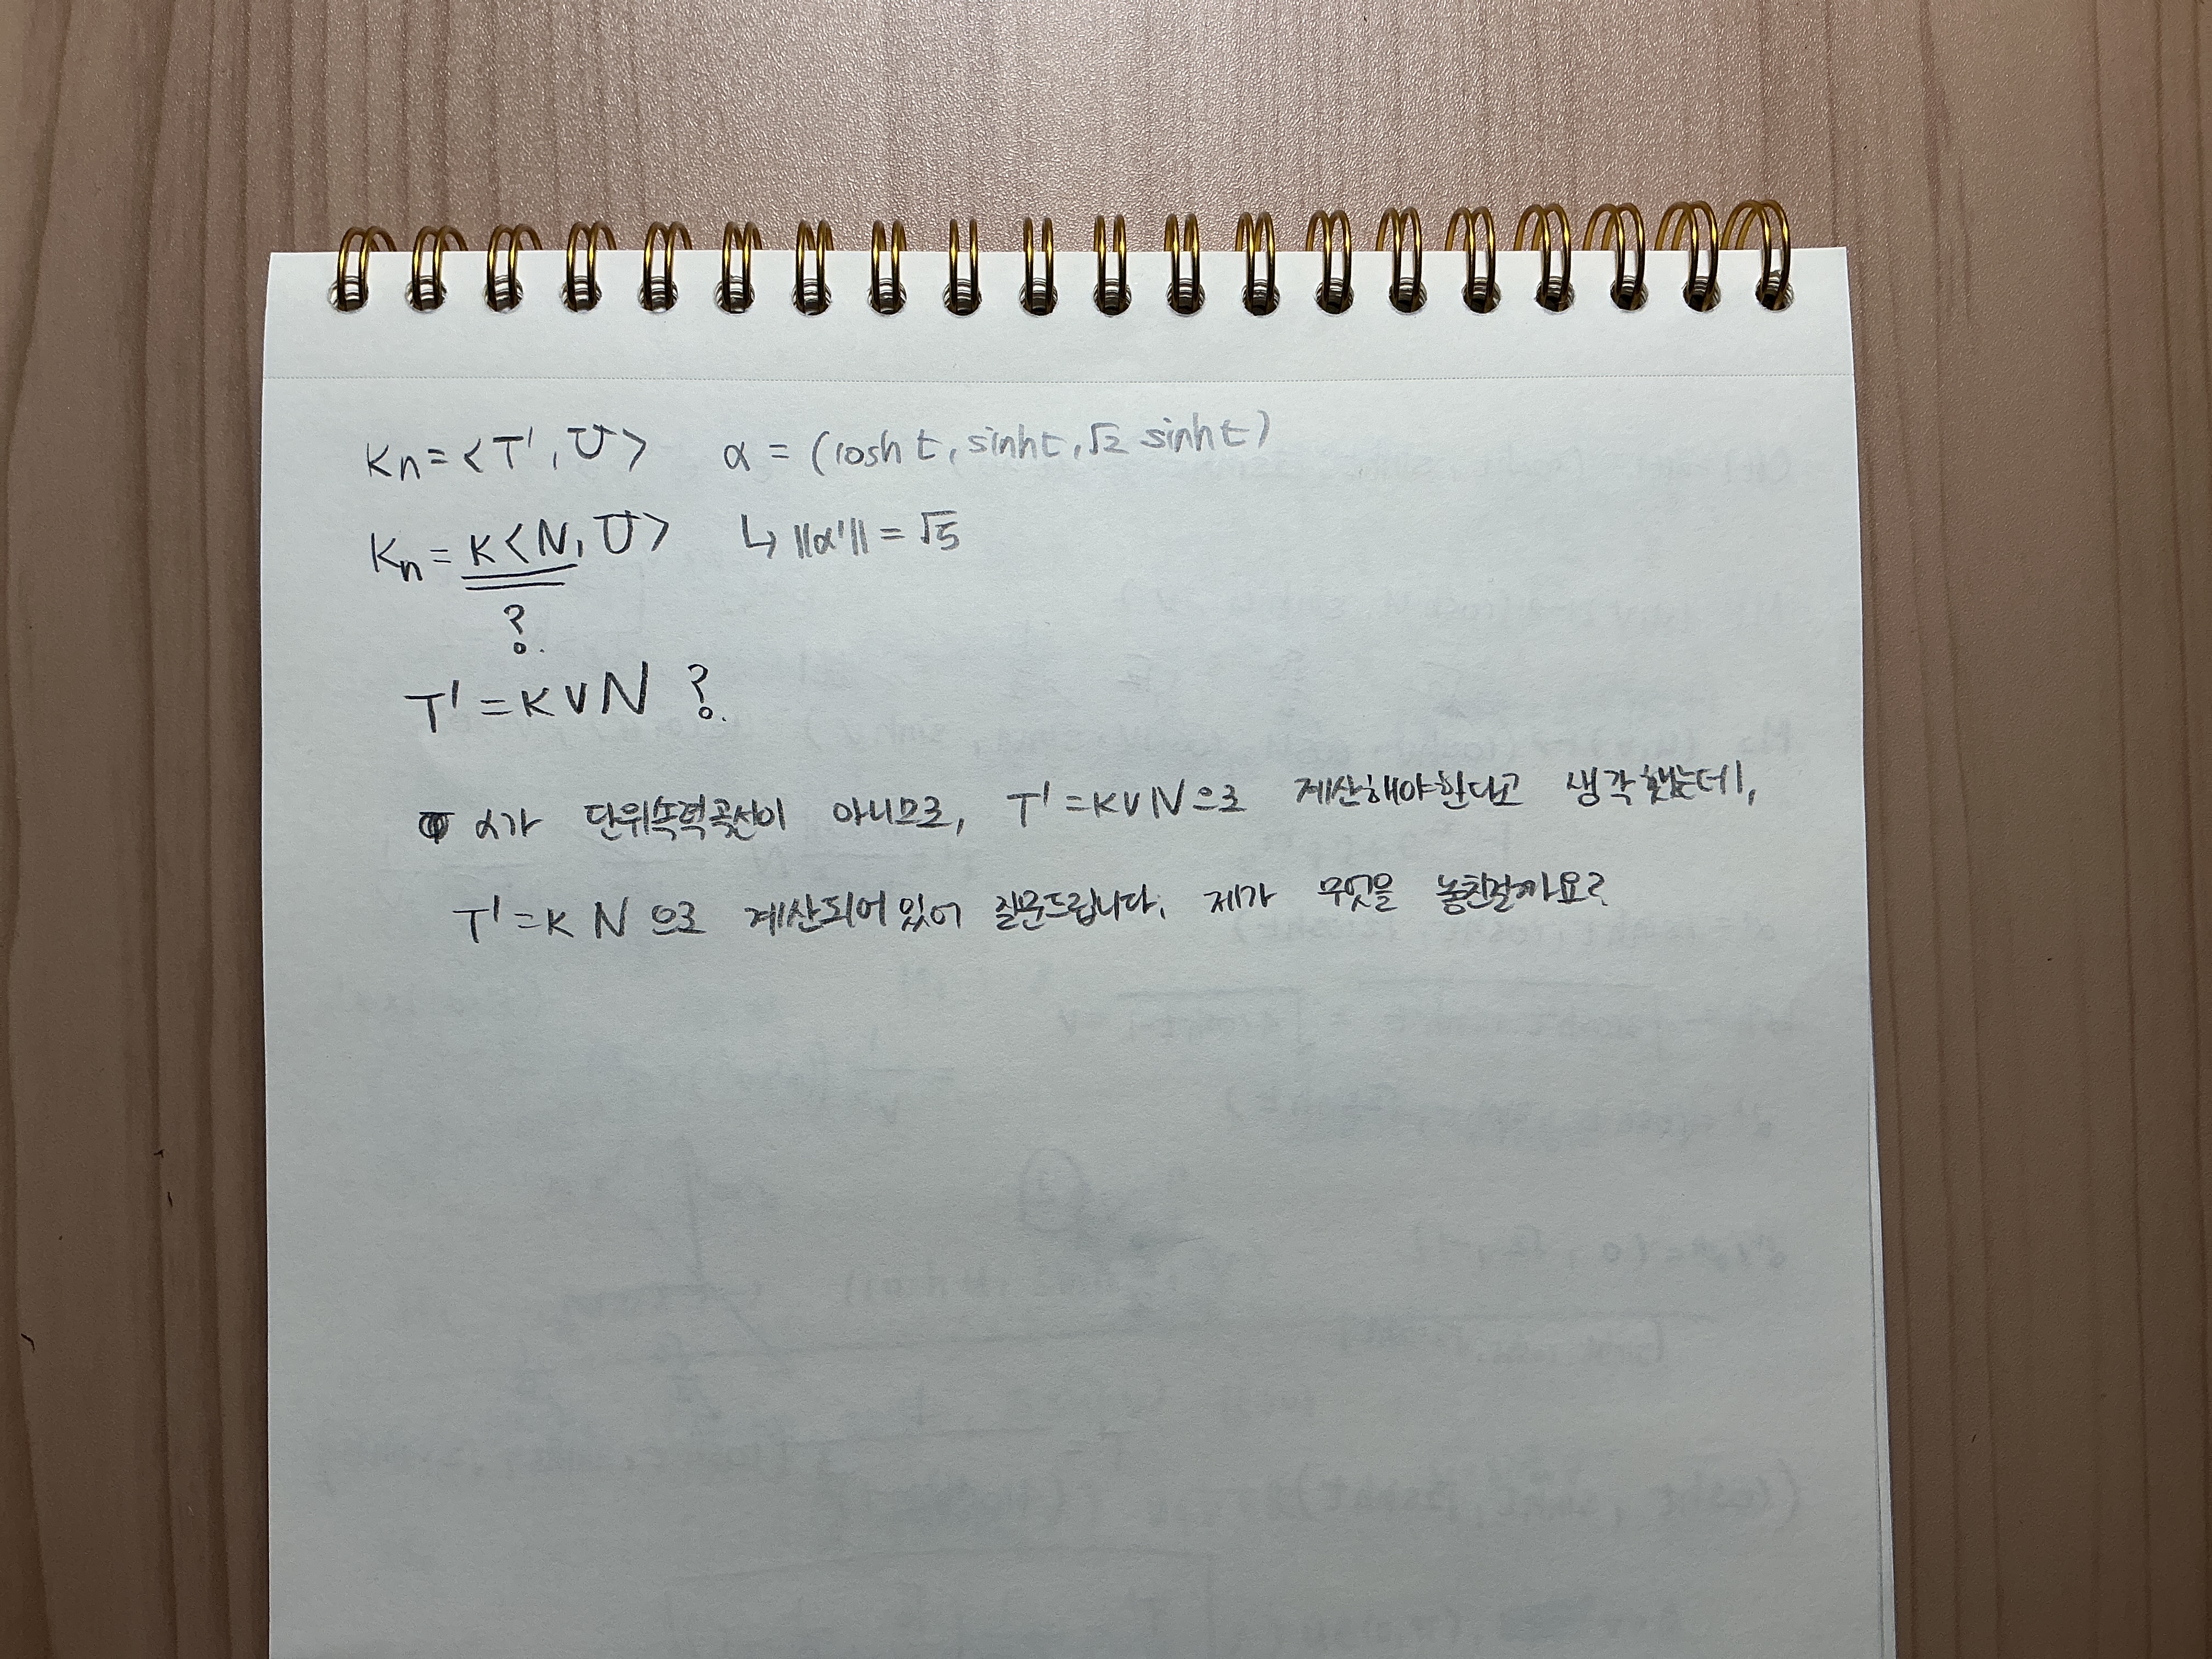 Kn = <T', U>   α = (cosh t, sinh t, √2 sinh t)
Kn = K<N, U>   ↳ ||α'|| = √5
?
T' = K V N ?
α가 단위속력곡선이 아니므로, T' = KVN으로 계산해야한다고 생각했는데,
T' = K N 으로 계산되어있어 질문드립니다. 제가 무엇을 놓친걸까요?